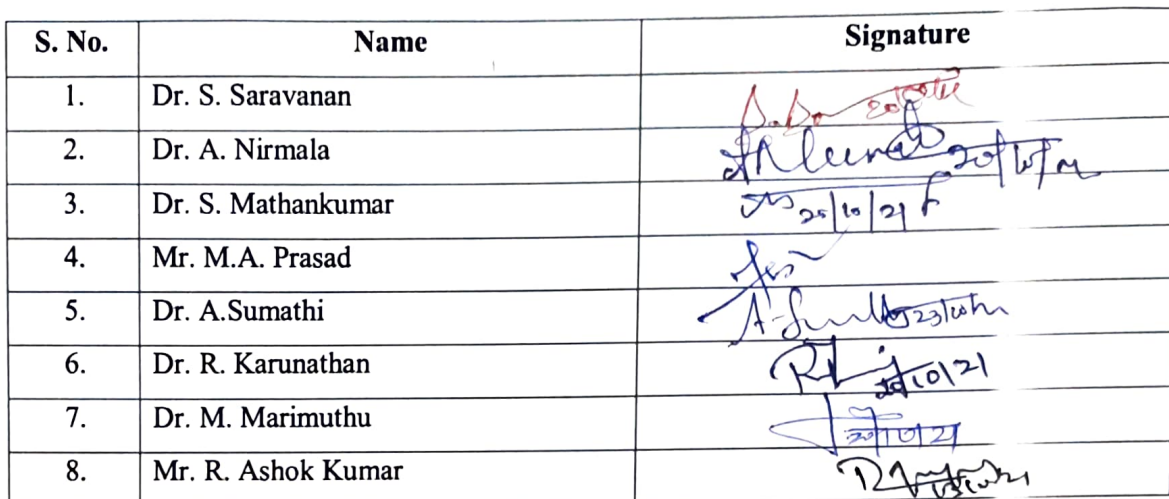 S. No. Name Signature
1. Dr. S. Saravanan
2. Dr. A. Nirmala
3. Dr. S. Mathankumar 20/10/21
4. Mr. M.A. Prasad
5. Dr. A.Sumathi
6. Dr. R. Karunathan 20/10/21
7. Dr. M. Marimuthu 20/10/21
8. Mr. R. Ashok Kumar